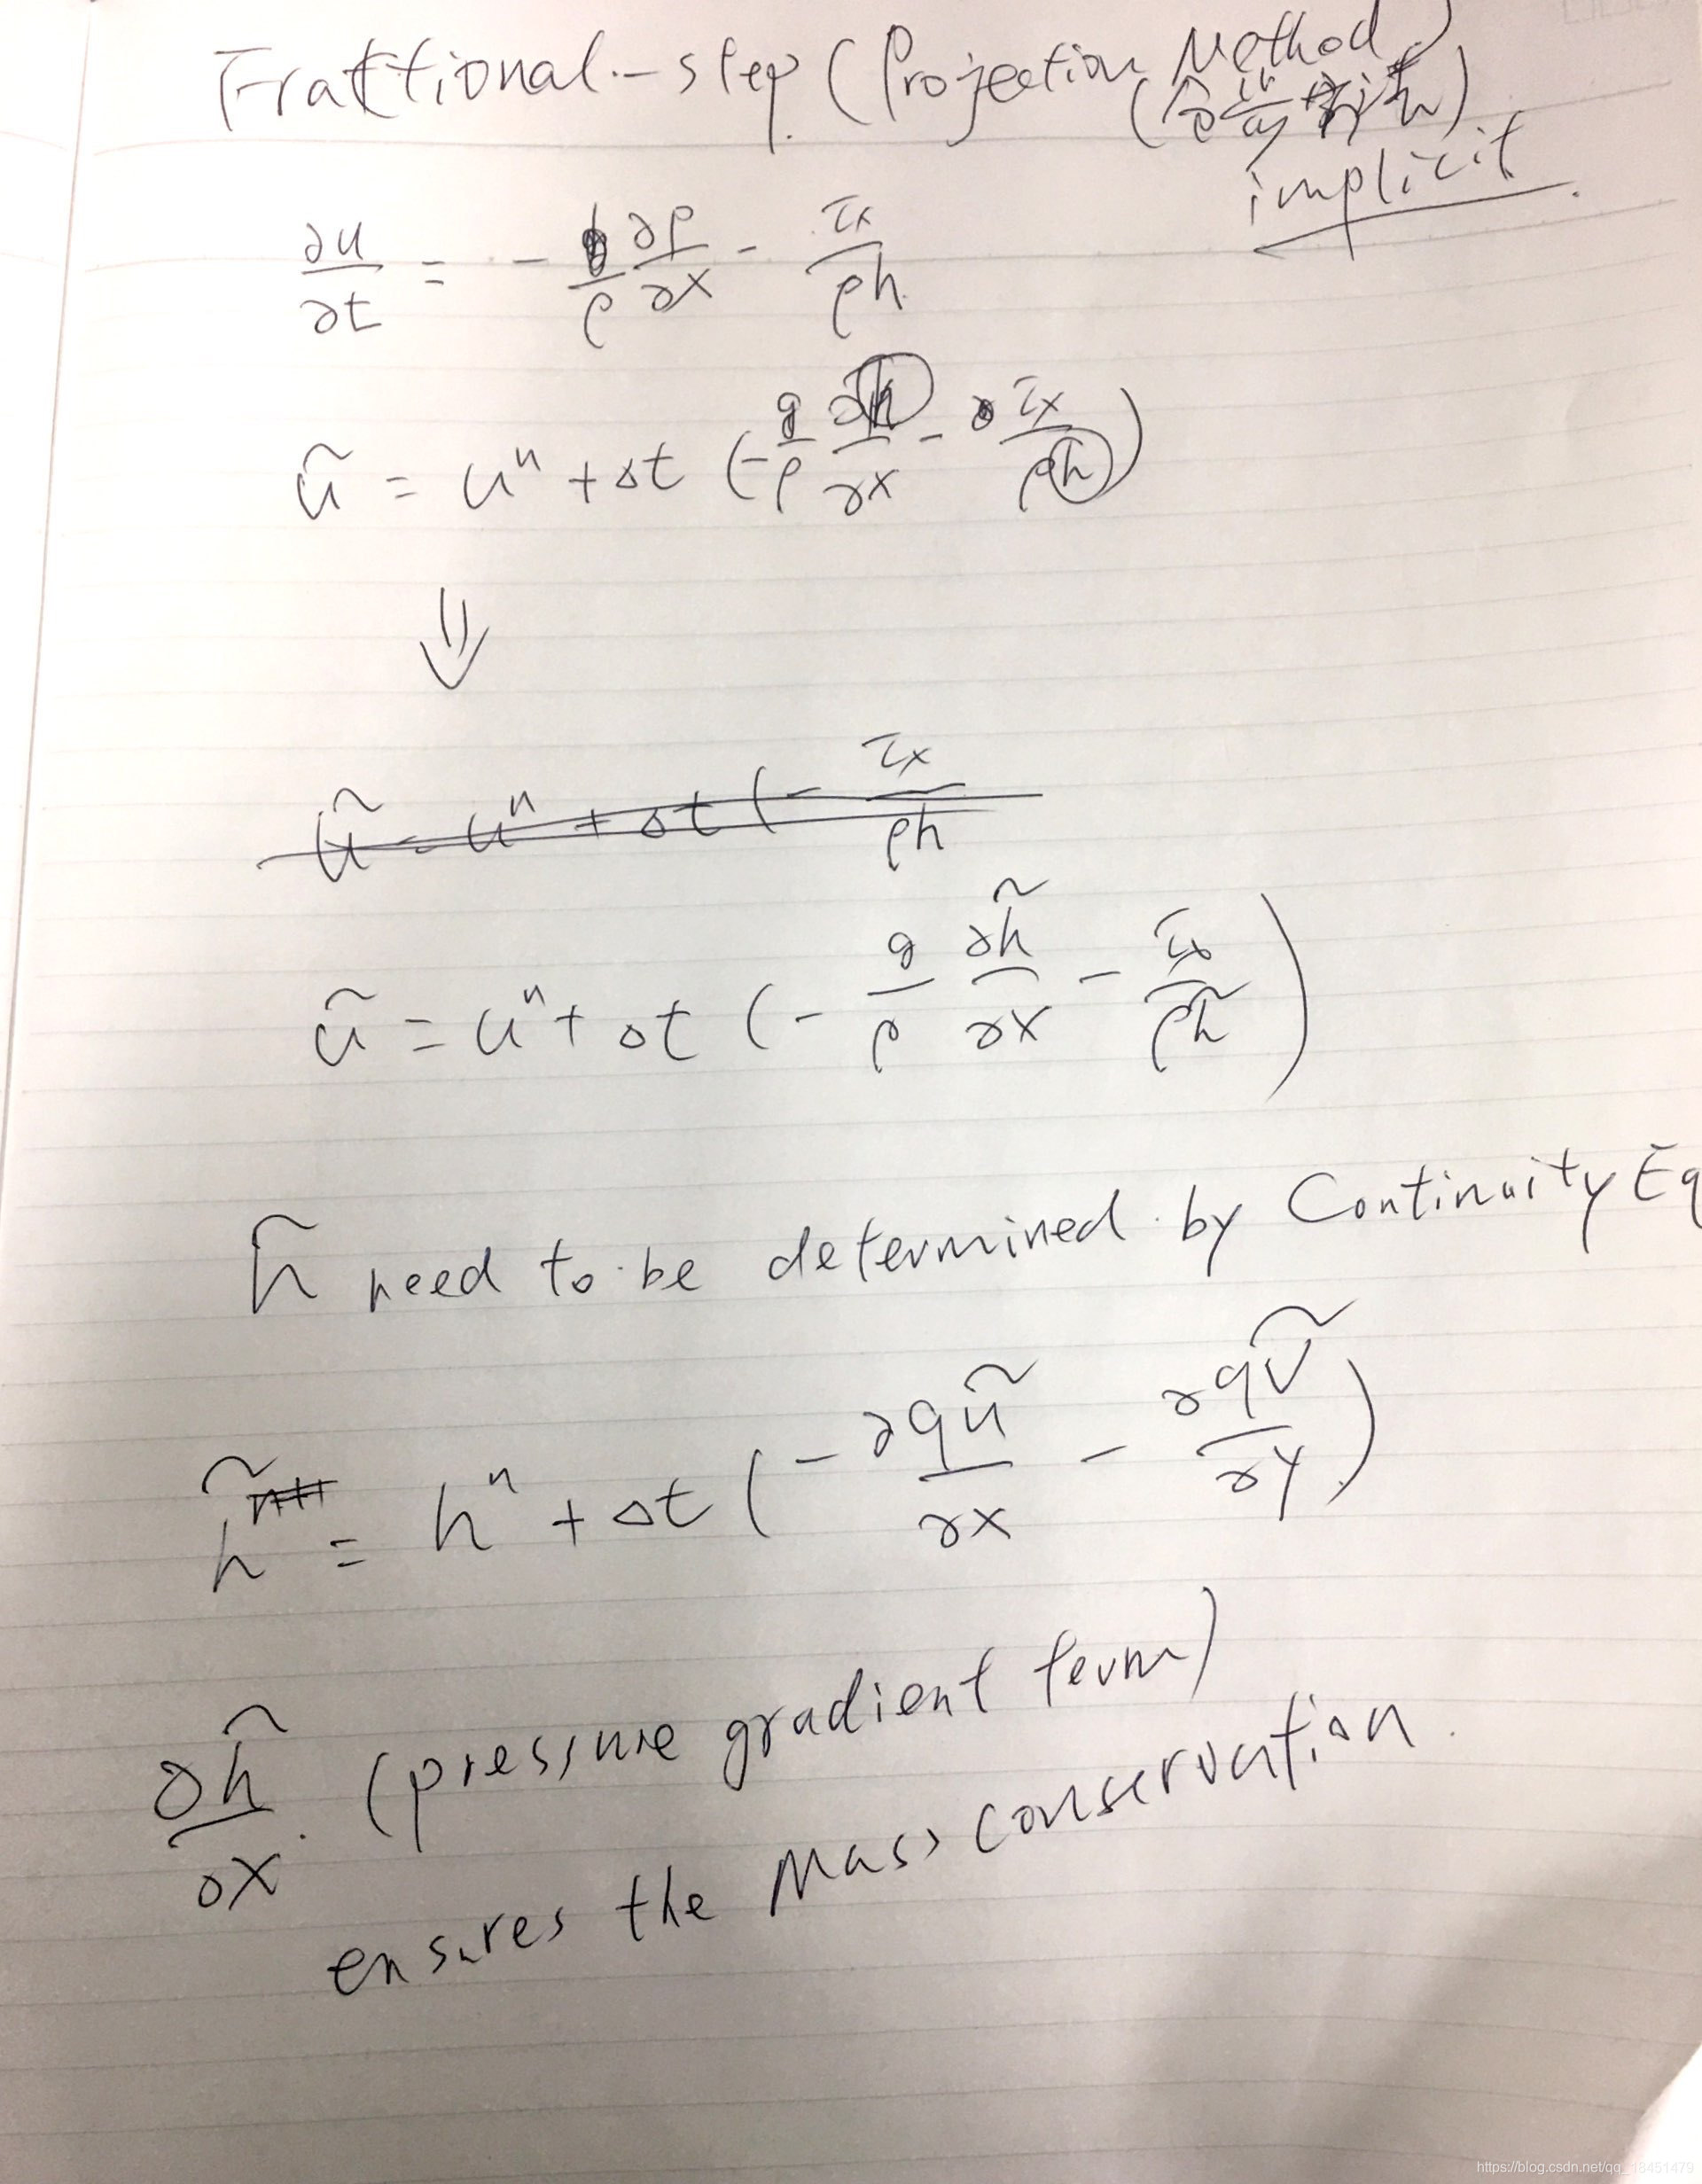 Fractional-step (Projection Method)
implicit
∂u/∂t = - 1/ρ ∂p/∂x - τx/ρh
ũ = uⁿ + Δt (- g/ρ ∂h/∂x - τx/ρh)
⇓
ũ = uⁿ + Δt (- τx/ρh
ũ = uⁿ + Δt (- g/ρ ∂h̃/∂x - τx/ρh̃)
h̃ need to be determined by Continuity Eq
h̃ = hⁿ + Δt (- ∂qũ/∂x - ∂qṽ/∂y)
∂h̃/∂x (pressure gradient term)
ensures the Mass conservation.
https://blog.csdn.net/qq_18451479